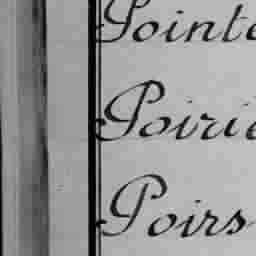 Pointe
Poirie
Poirs